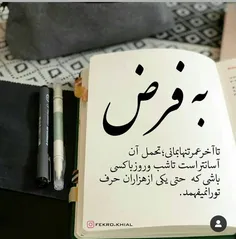 به فرض
تا آخر عمر تنها بمانی؛ تحمل آن
آسانتر است تا شب و روز با کسی
باشی که حتی یکی از هزاران حرف
تو را نمیفهمد.
FEKRO.KHIAL